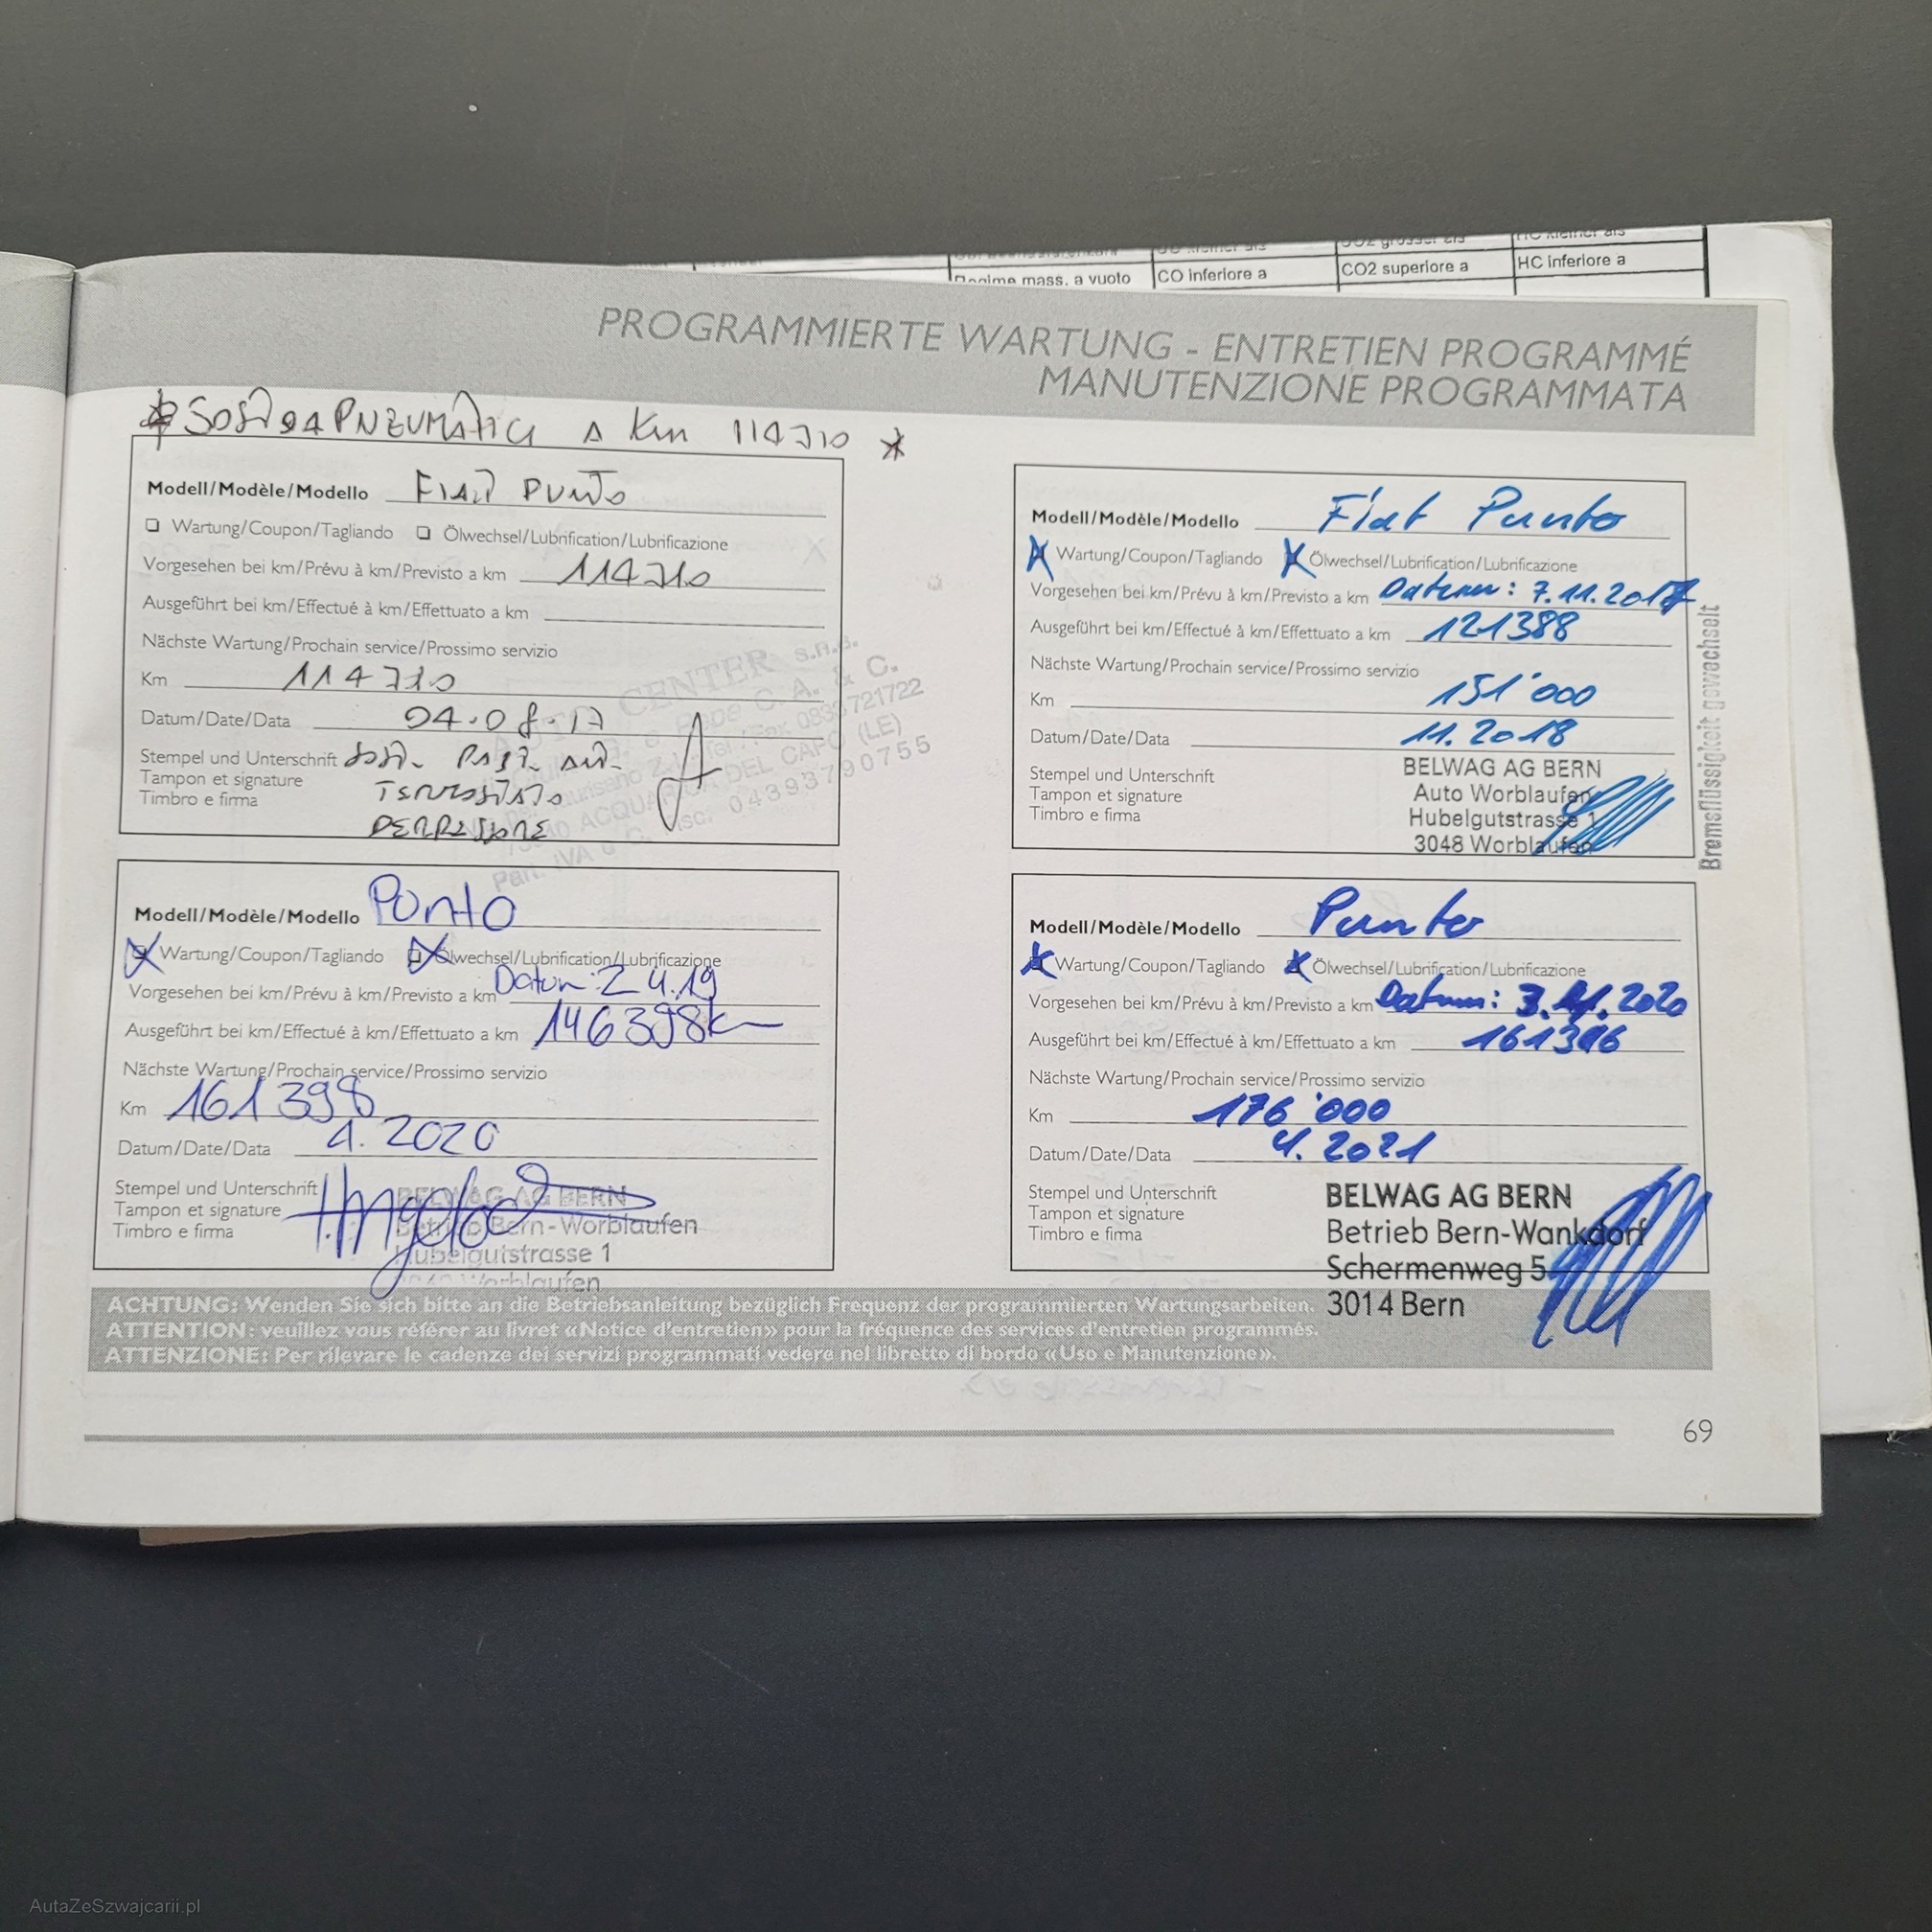 CO inferiore a
CO2 superiore a
HC inferiore a
mass. a vuoto
PROGRAMMIERTE WARTUNG - ENTRETIEN PROGRAMMÉ
MANUTENZIONE PROGRAMMATA
PNEUMATICI A Km 114710
Modell/Modèle/Modello FIAT PUNTO
Wartung/Coupon/Tagliando Ölwechsel/Lubrification/Lubrificazione
Vorgesehen bei km/Prévu à km/Previsto a km 114710
Ausgeführt bei km/Effectué à km/Effettuato a km
Nächste Wartung/Prochain service/Prossimo servizio
Km 114710
Datum/Date/Data 04.08.17
Stempel und Unterschrift
Tampon et signature
Timbro e firma
CENTER s.n.c.
ACQUARICA DEL CAPO (LE)
04393790755
Modell/Modèle/Modello Fiat Punto
Wartung/Coupon/Tagliando Ölwechsel/Lubrification/Lubrificazione
Vorgesehen bei km/Prévu à km/Previsto a km Datum: 7.11.2017
Ausgeführt bei km/Effectué à km/Effettuato a km 121388
Nächste Wartung/Prochain service/Prossimo servizio
Km 151'000
Datum/Date/Data 11.2018
Stempel und Unterschrift
Tampon et signature
Timbro e firma
BELWAG AG BERN
Auto Worblaufen
Hubelgutstrasse 1
3048 Worblaufen
Bremsflüssigkeit gewechselt
Modell/Modèle/Modello Ponto
Wartung/Coupon/Tagliando Ölwechsel/Lubrification/Lubrificazione
Vorgesehen bei km/Prévu à km/Previsto a km Datum: 2 4.19
Ausgeführt bei km/Effectué à km/Effettuato a km 146398km
Nächste Wartung/Prochain service/Prossimo servizio
Km 161398
Datum/Date/Data 4.2020
Stempel und Unterschrift
Tampon et signature
Timbro e firma
BELWAG AG BERN
Betrieb Bern-Worblaufen
Hubelgutstrasse 1
3048 Worblaufen
Modell/Modèle/Modello Punto
Wartung/Coupon/Tagliando Ölwechsel/Lubrification/Lubrificazione
Vorgesehen bei km/Prévu à km/Previsto a km Datum: 3.4.2020
Ausgeführt bei km/Effectué à km/Effettuato a km 161396
Nächste Wartung/Prochain service/Prossimo servizio
Km 176'000
Datum/Date/Data 4.2021
Stempel und Unterschrift
Tampon et signature
Timbro e firma
BELWAG AG BERN
Betrieb Bern-Wankdorf
Schermenweg 5
3014 Bern
ACHTUNG: Wenden Sie sich bitte an die Betriebsanleitung bezüglich Frequenz der programmierten Wartungsarbeiten.
ATTENTION: veuillez vous référer au livret «Notice d'entretien» pour la fréquence des services d'entretien programmés.
ATTENZIONE: Per rilevare le cadenze dei servizi programmati vedere nel libretto di bordo «Uso e Manutenzione».
69
AutaZeSzwajcarii.pl